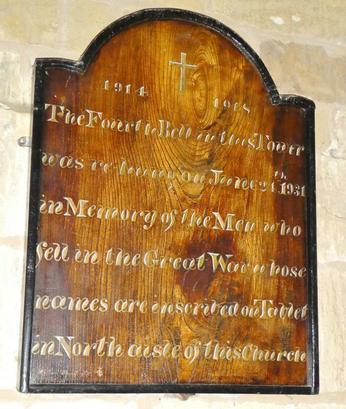 1914 1918
The Fourth Bell in this Tower
was re-hung on June 24th 1931
in Memory of the Men who
fell in the Great War whose
names are inscribed on Tablet
in North aisle of this Church